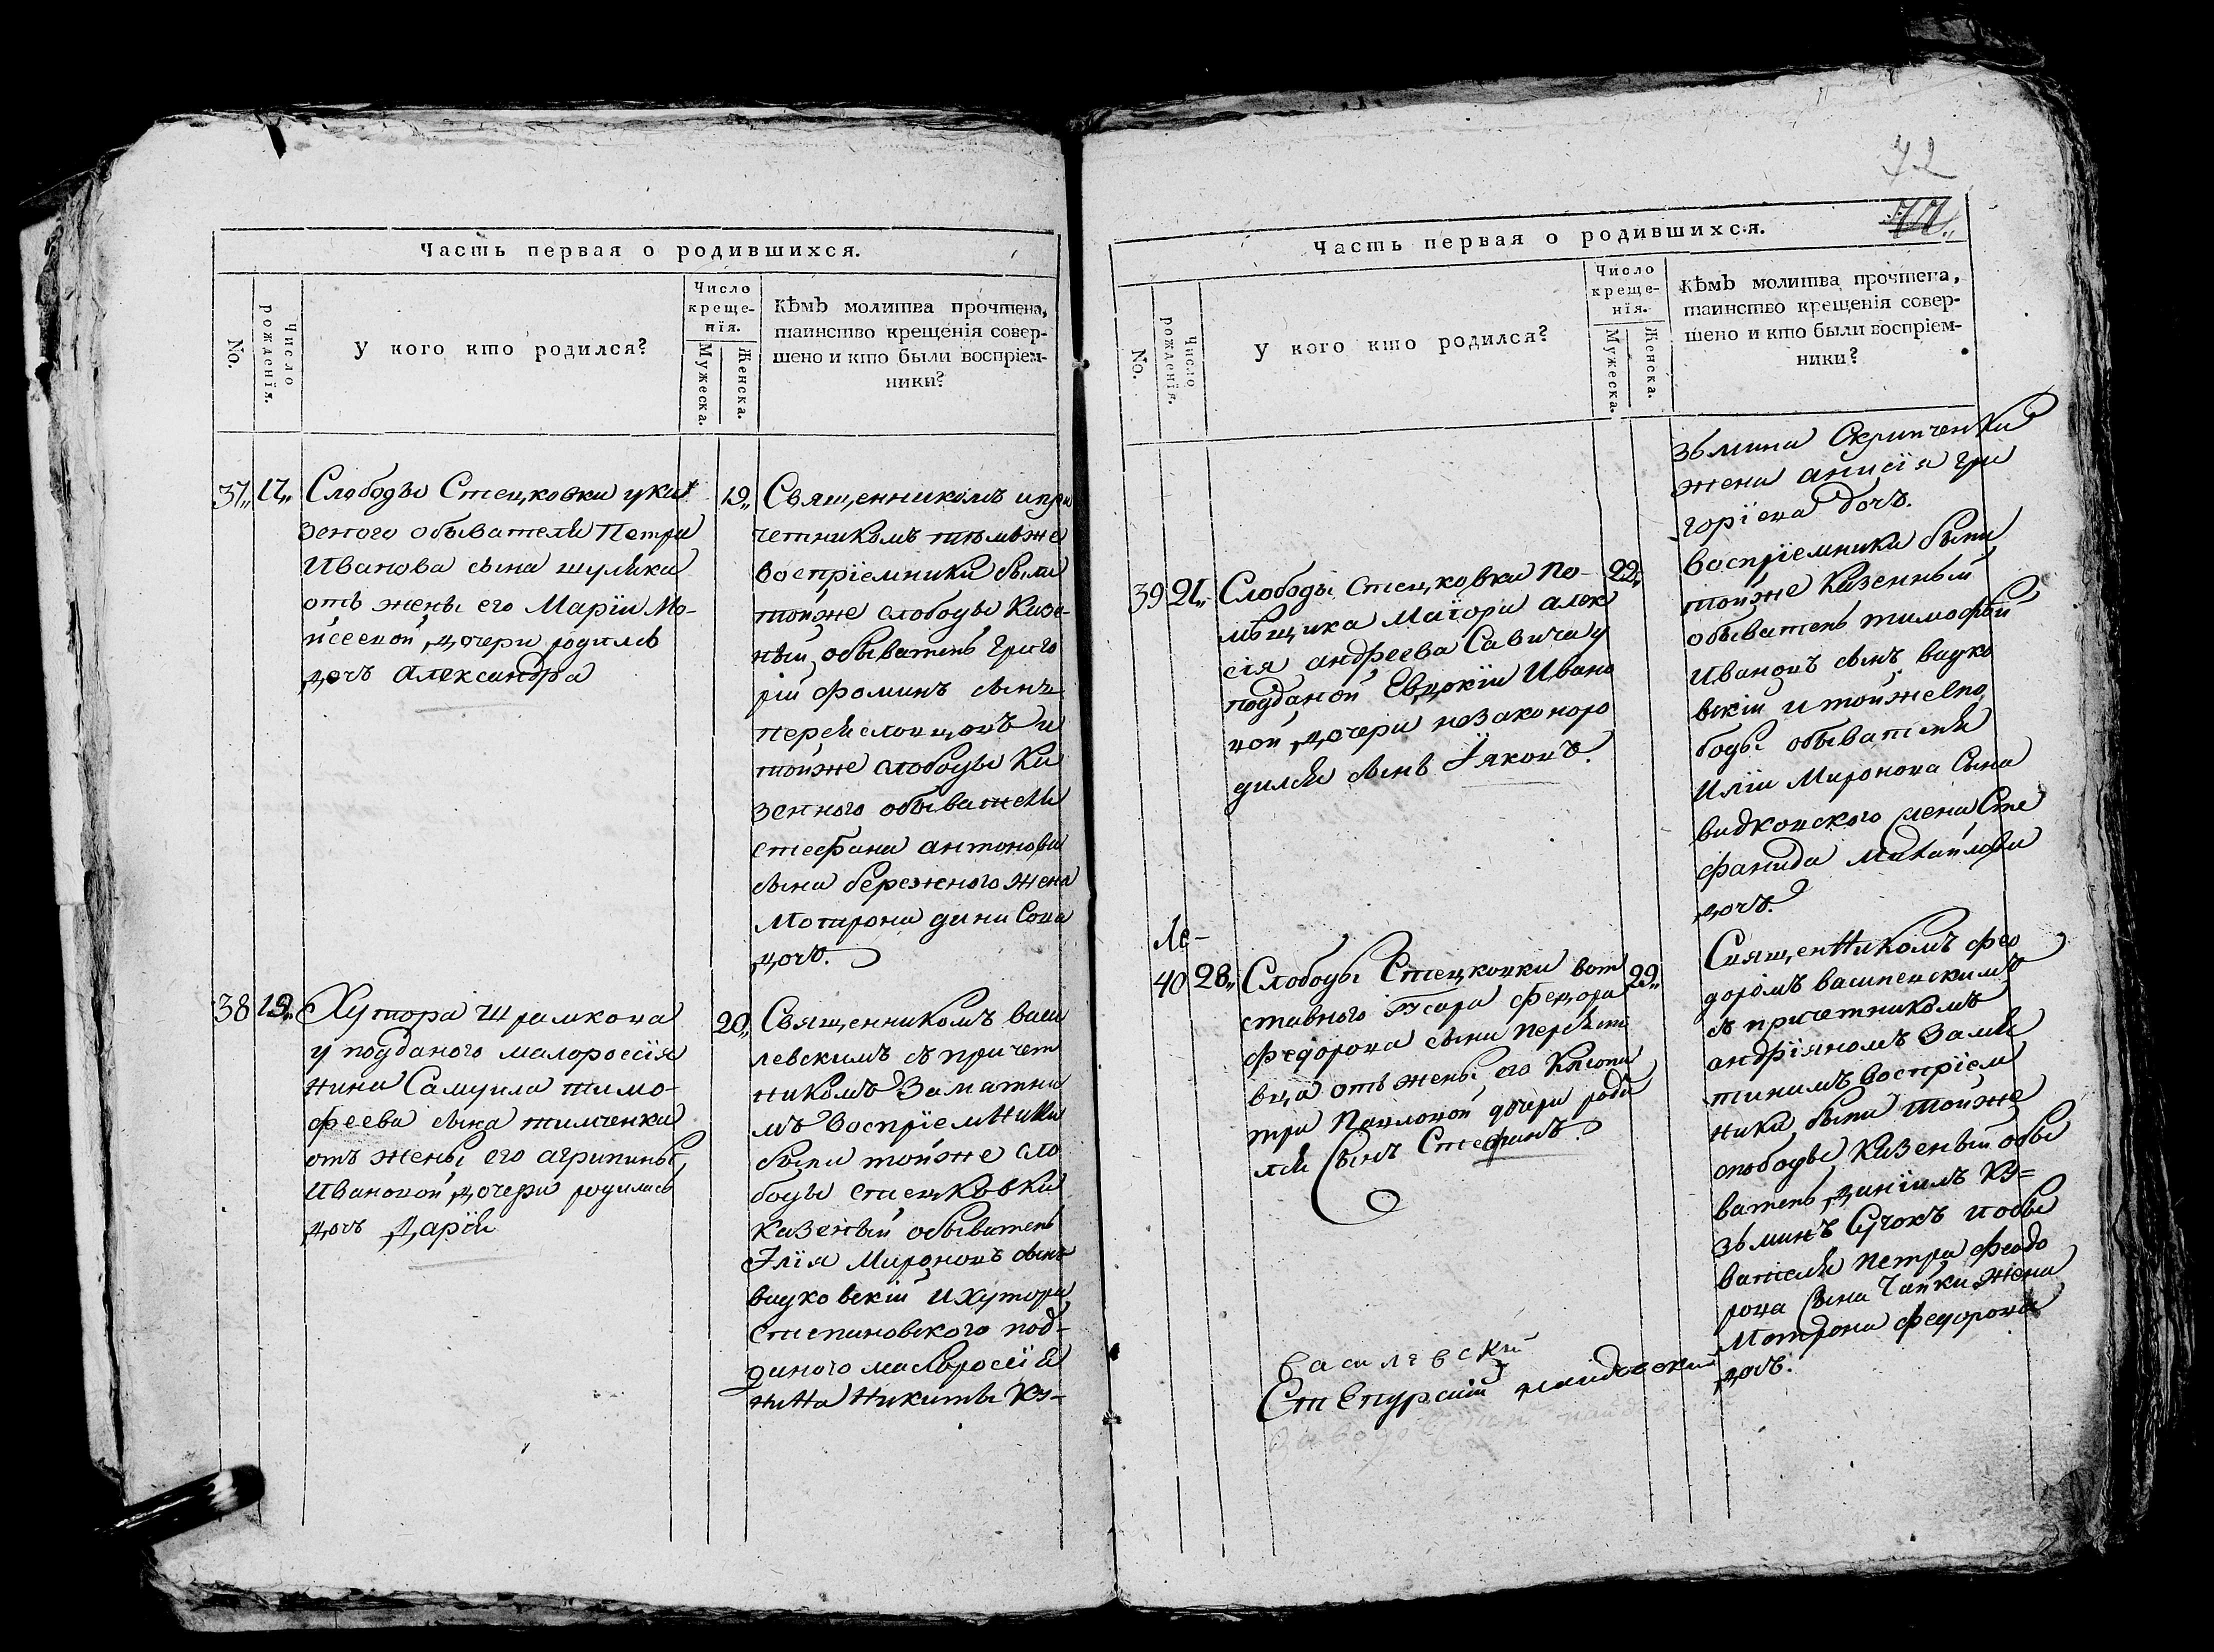 Часть первая о родившихся.
No.
Число рожденія.
У кого кто родился?
Число
креще-
нія.
Мужеска.
Женска.
Кѣмъ молитва прочтена,
таинство крещенія совер-
шено и кто были воспріем-
ники?
37 17
Слободы Стецковки у ка
зеного обывателя Петра
Иванова сына шуляка
отъ жены его Маріи Мо-
исеевой дочери родилсь
дочь Александра
19
Священникомъ и при
четникомъ тѣмъже
воспріемники были
тойже слободы Казе
ный обыватель Григо
рій Фоминъ сынъ
и
тойже слободы Ка
зенного обывателя
Стефана антонова
сына бережного жена
Мотрона дани Сова
дочь.
38 19
Хутора Шрамкова
у подданого малороссія
нина Самуила тимо-
феева сына тимченка
отъ жены его агрипины
Ивановой дочери родилась
дочь Дарія
20
Священникомъ васи
левскимъ съ причет
никомъ Заматни
мъ воспріемники
были тойже сло
боды стецковки
казеный обыватель
Илія Мироновъ сынъ
вадковскій и хутора
Степановского под-
даного малоросія
нина Никиты Ку=
42
Часть первая о родившихся.
No.
Число рожденія.
У кого кто родился?
Число
креще-
нія.
Мужеска.
Женска.
Кѣмъ молитва прочтена,
таинство крещенія совер-
шено и кто были воспріем-
ники?
зьмина Скрипченка
жена анисія гри
горіева дочь.
39 21
Слободы Стецковки по-
мѣщика Маіора алек
сія андреева Савича у
подданой Евдокіи Ивано
вой дочери незаконоро
дился сынъ Іяковъ.
22
воспріемники были
тойже Казенный
обыватель тимофѣй
Ивановъ сынъ вадко
вскій и тойже сло
боды обывателя
Иліи Миронова Сына
вадковского жена Сте
фанида Михайлова
дочь.
40 28
Слободы Стецковки вот
ставного Псаря Федора
федорова сына
отъ жены его Клеопа
тры Павловой дочери роди
лся Сынъ Стефанъ.
29
Священникомъ фео
доромъ василевскимъ
съ причетникомъ
андріяномъ Замя
тинимъ воспріем
ники были тойже
слободы Казеный обы
ватель даніилъ Ку=
зьминъ Сучокъ и обы
вателя Петра феодо
рова Сына Чайки жена
Мотрона федорова
дочь.
Василевскій